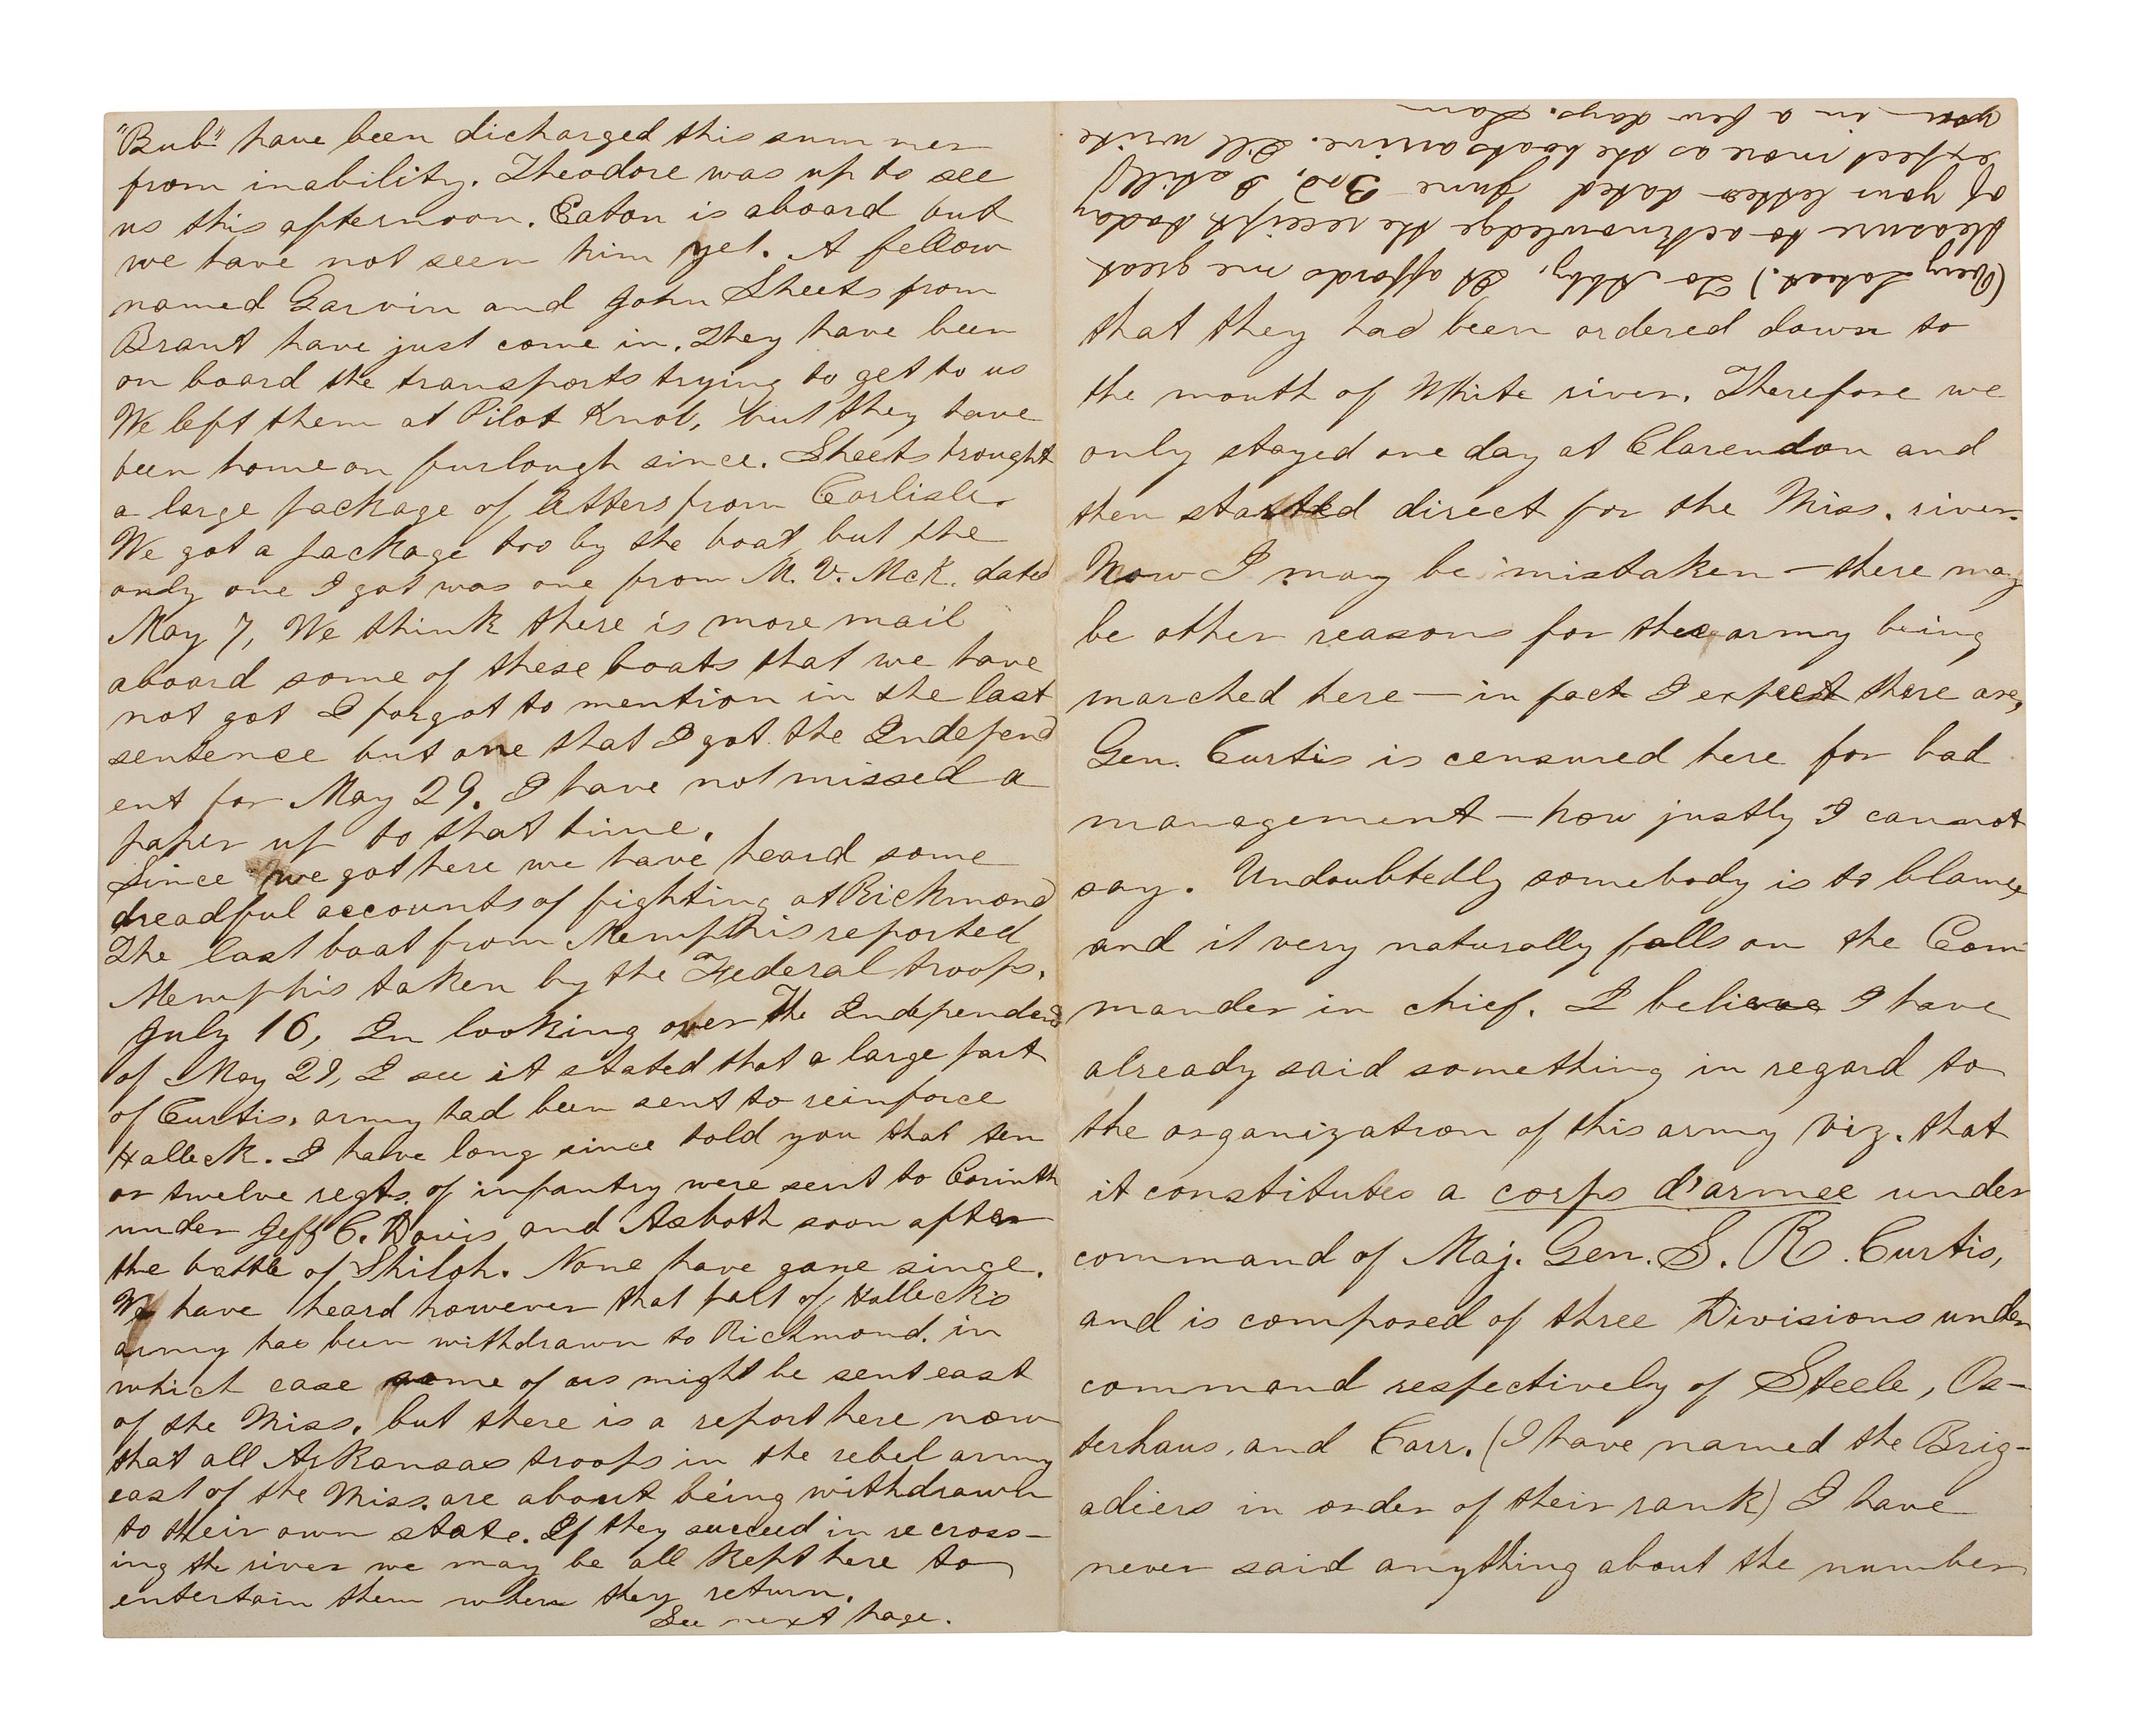 "Bub" have been dicharged this summer
from inability. Theodore was up to see
us this afternoon. Eaton is aboard but
we have not seen him yet. A fellow
named Garvin and John Sheets from
Brant have just come in. They have been
on board the transports trying to get to us
We left them at Pilot Knob, but they have
been home on furlough since. Sheets brought
a large package of letters from Carlisle.
We got a package too by the boat but the
only one I got was one from M. V. McK. dated
May 7, We think there is more mail
aboard some of these boats that we have
not got I forgot to mention in the last
sentence but one that I got the Independ
ent for May 29. I have not missed a
paper up to that time.
Since we got here we have heard some
dreadful accounts of fighting at Richmond
The last boat from Memphis reported
Memphis taken by the Federal troops.
July 16, In looking over the Independent
of May 29, I see it stated that a large part
of Curtis, army had been sent to reinforce
Halleck. I have long since told you that ten
or twelve regts. of infantry were sent to Corinth
under Jeff C. Davis and Asboth soon after
the battle of Shiloh. None have gone since.
We have heard however that part of Halleck's
army has been withdrawn to Richmond. in
which case some of us might be sent east
of the Miss. but there is a report here now
that all Arkansas troops in the rebel army
east of the Miss. are about being withdrawn
to their own state. If they succeed in recross-
ing the river we may be all kept here to
entertain them when they return.
See next page.
(Very Latest.) To Abby, It affords me great
pleasure to acknowledge the receipt today
of your letter dated June 3rd, I still
expect more as the boats arrive. I'll write
you in a few days. Sam
that they had been ordered down to
the mouth of White river. Therefore we
only stayed one day at Clarendon and
then started direct for the Miss. river.
Now I may be mistaken — there may
be other reasons for the army being
marched here — in fact I expect there are,
Gen. Curtis is censured here for bad
management — how justly I cannot
say. Undoubtedly somebody is to blame,
and it very naturally falls on the Com-
mander in chief. I believe I have
already said something in regard to
the organization of this army viz. that
it constitutes a corps d'armee under
command of Maj. Gen. S. R. Curtis,
and is composed of three Divisions under
command respectively of Steele, Os-
terhaus, and Carr. (I have named the Brig-
adiers in order of their rank) I have
never said anything about the number